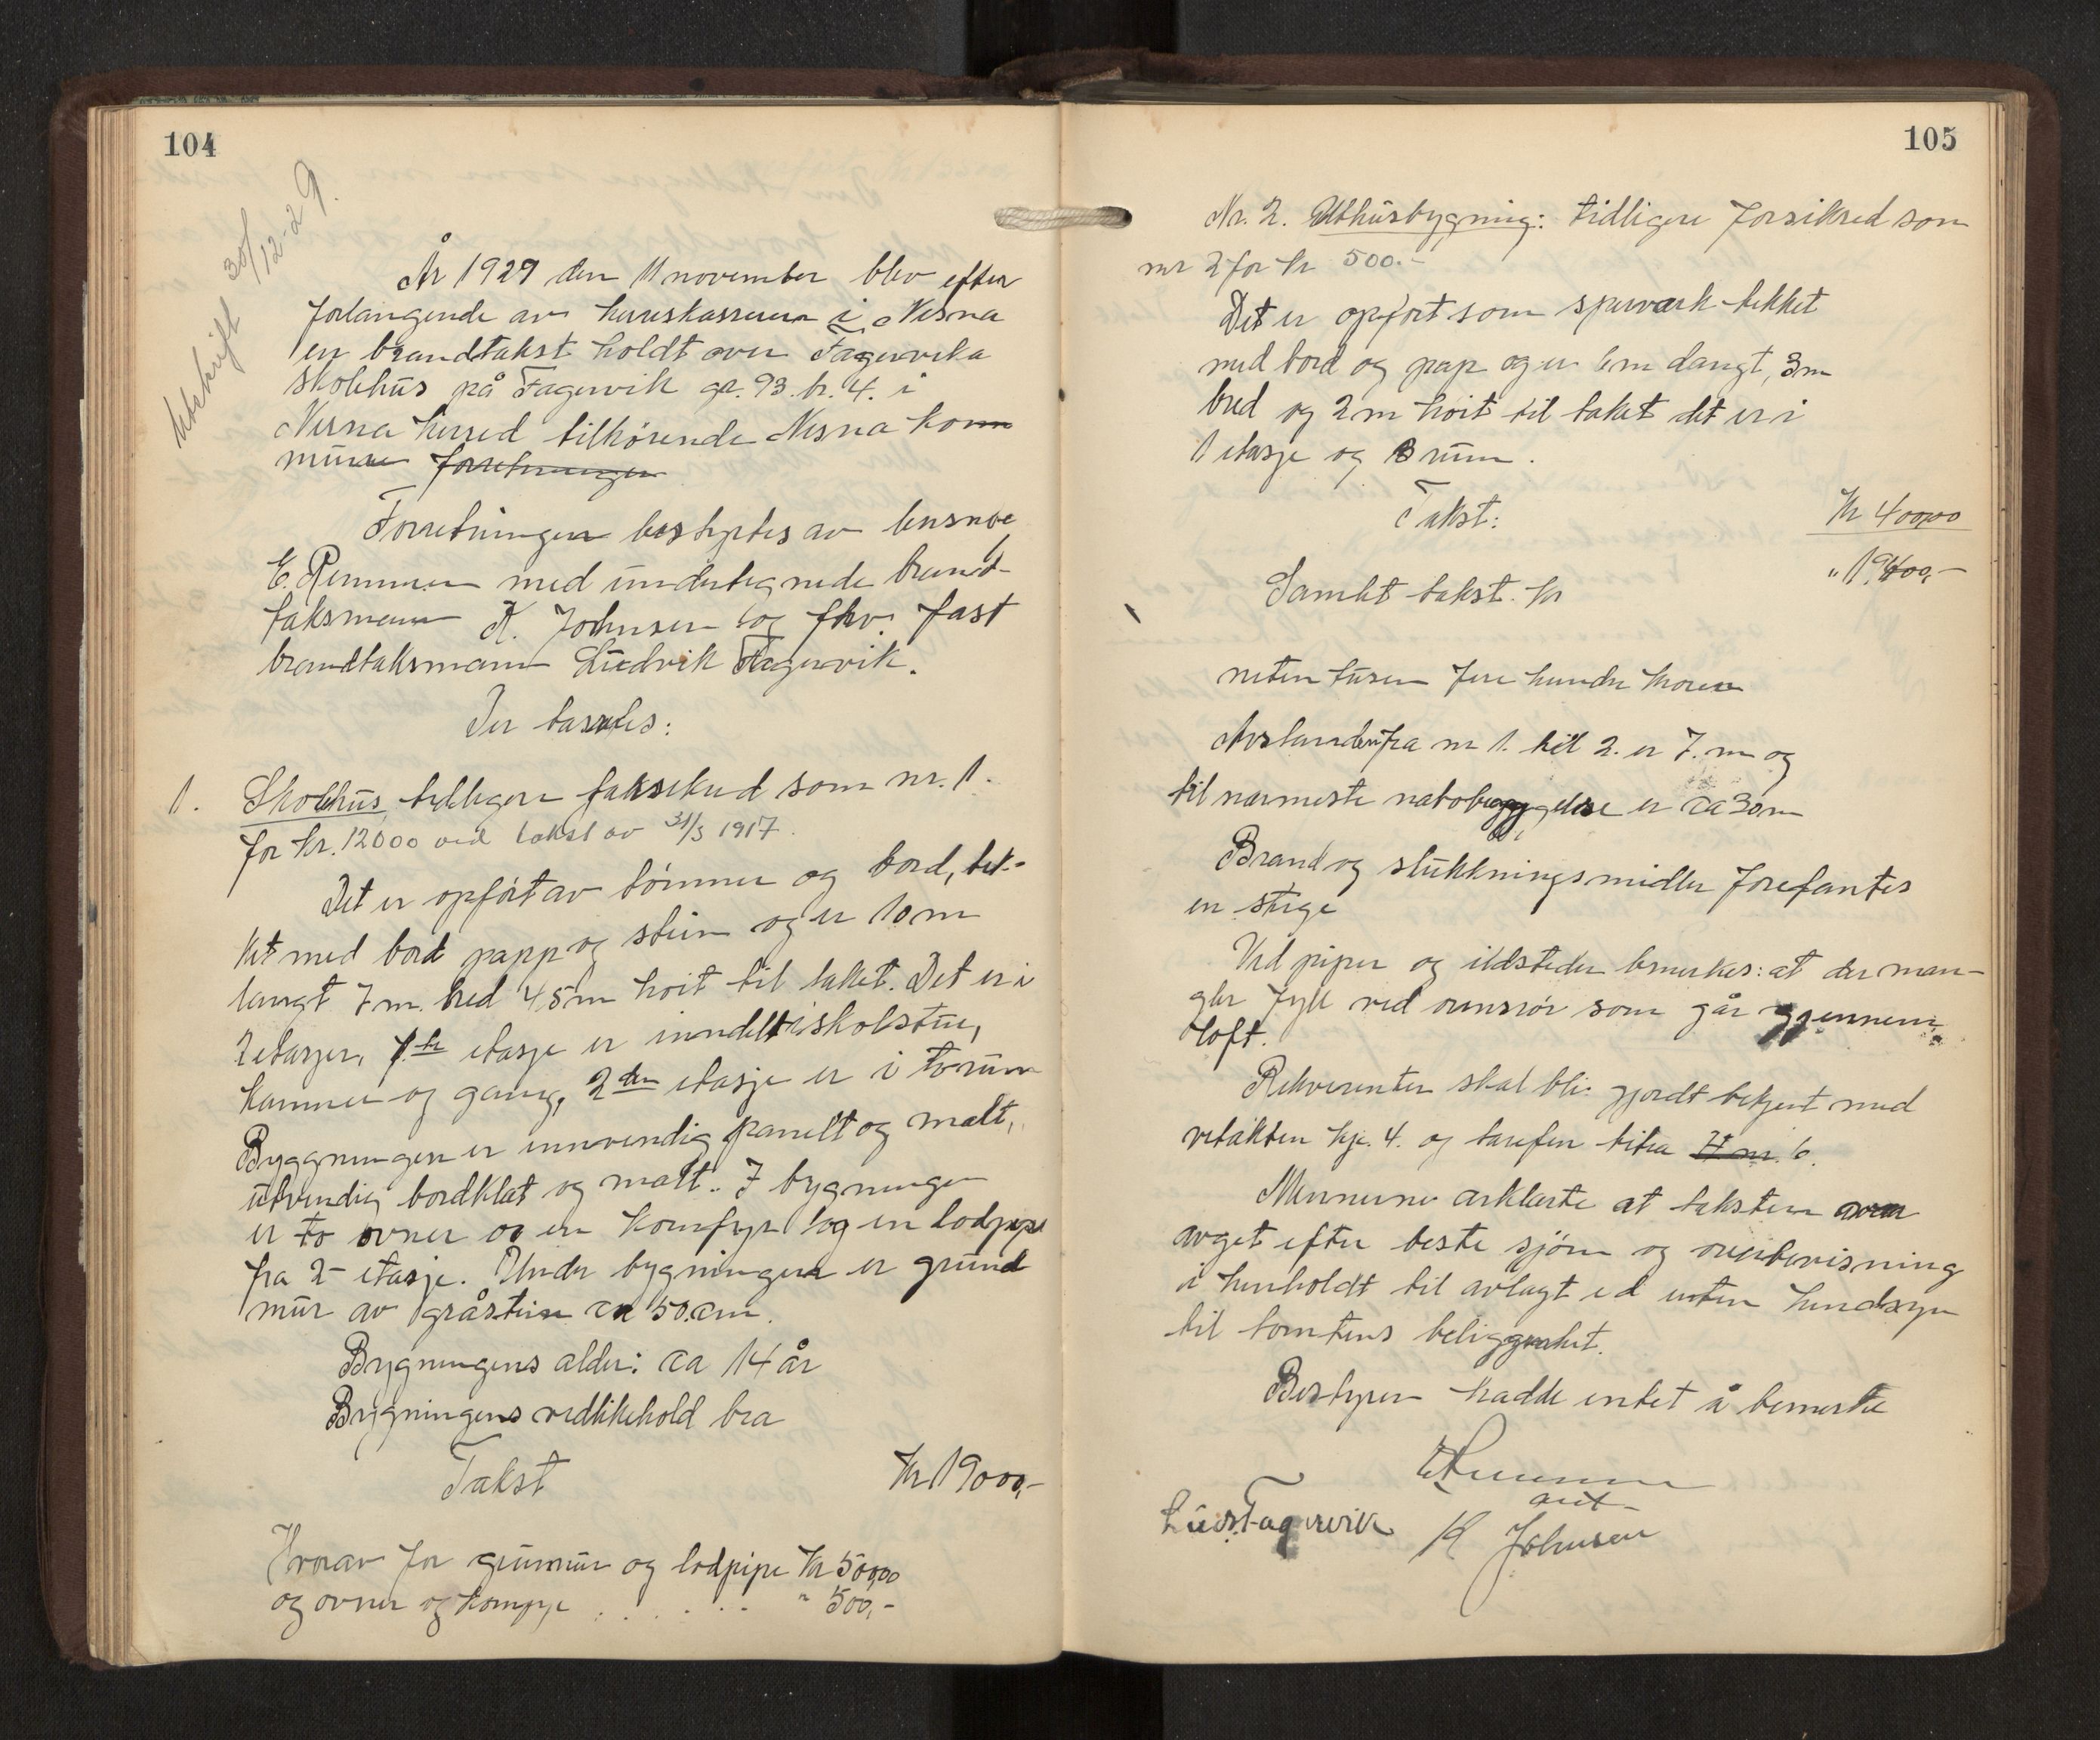 104
Utskrift 30/12-29.
År 1929 den 11 november blev efter
forlangende av herreskasseren i Nesna
en brandtakst holdt over Fagervika
skolehus på Fagervik gr. 93. br. 4. i
Nesna herred tilhørende Nesna kom
mune forretningen
Forretningen bestyrtes av lensm.
E. Remmen med undertegnede brand-
taksmenn K. Johnsen og fhv. fast
brandtaksmann Ludvik Fagervik.
Der taxertes:
1. Skolehus, tidligere forsikred som nr. 1.
for kr. 12000 ved takst av 31/3 1917.
Det er opført av tømmer og bord, tek-
ket med bord papp og stein og er 10 m
langt 7 m. bred 4,5 m høit til taket. Det er i
2 etasjer, 1ste etasje er inndelt i skolstue,
kammer og gang, 2den etasje er i to rum
Byggningen er innvendig panelt og malt,
utvendig bordklæt og malt. I bygningen
er to ovner og en komfyr og en lodpipe
fra 2- etasje. Under bygningen er grund
mur av gråstein ca 50.cm.
Bygningens alder: ca 14 år
Bygningens vedlikehold bra
Takst Kr 19000,-
Hvorav for grunmur og lodpipe Kr 500,00
og ovner og komfyr . . . . . " 500,-
105
Nr. 2. Uthusbygning: tidligere forsikred som
nr 2 for kr 500.-
Det er opført som sperverk tekket
med bord og pap og er 6 m langt, 3 m
bred og 2 m høit til taket det er i
1 etasje og 3 rum.
Takst: Kr 400,00
Samlet takst. kr " 19400,-
nitten tusen fire hundre kroner
Avstanden fra nr 1. til 2. er 7. m og
til nærmeste nabobebyggelse er ca 30 m
Brand og slukkningsmidler forefantes
en stige
Ved piper og ildsteder bemerkes: at der man-
gler fyll ved ovnsrør som går gjennem
loft.
Rekvirenten skal bli gjordt bekjent med
vetækten kp. 4. og tarifen litra H nr. 6.
Mennene erklærte at taksten var
avget efter beste sjøn og overbevisning
i henholdt til avlagt ed uten hendsyn
til tomtens beliggenhet.
Bestyrer hadde intet å bemerke
E Remmen
Ludv. Fagervik K Johnsen